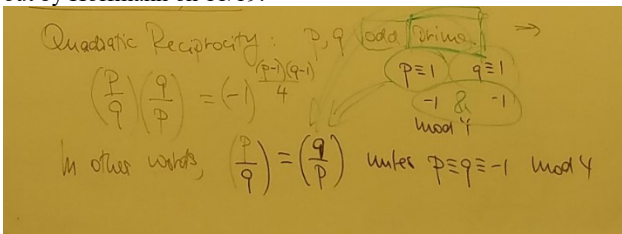 Quadratic Reciprocity: p, q odd prime ⇒
(p/q)(q/p) = (-1)^((p-1)(q-1)/4)
p≡1 q≡1
-1 & -1
mod 4
In other words, (p/q) = (q/p) unless p≡q≡-1 mod 4